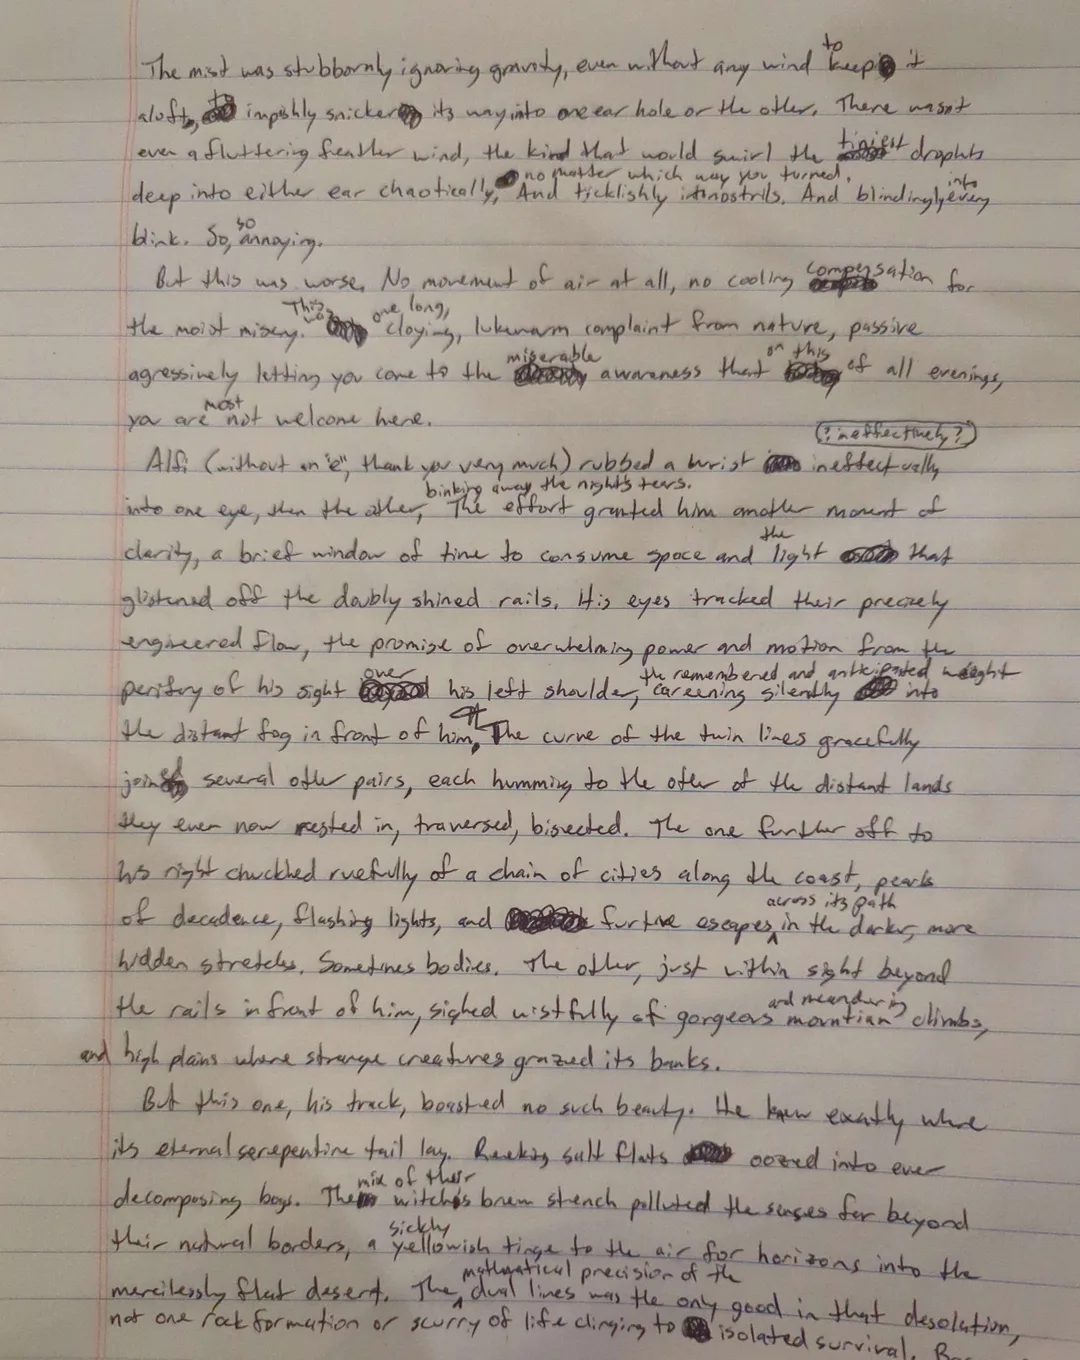 The mist was stubbornly ignoring gravity, even without any wind to keep it
aloft, impishly snicker its way into one ear hole or the other. There wasn't
even a fluttering feather wind, the kind that would swirl the tiniest droplets
deep into either ear chaotically, no matter which way you turned. And ticklishly into nostrils. And blindingly into every
blink. So, so annoying.
But this was worse. No movement of air at all, no cooling compensation for
the moist misery. This was one long, cloying, lukewarm complaint from nature, passive
agressively letting you come to the miserable awareness that on this of all evenings,
you are most not welcome here.
(? ineffectively?)
Alfi (without an "e", thank you very much) rubbed a wrist ineffectually
into one eye, then the other, binking away the night's tears. The effort granted him another moment of
clarity, a brief window of time to consume space and the light that
glistened off the doubly shined rails. His eyes tracked their precisely
engineered flow, the promise of overwhelming power and motion from the
perifry of his sight over his left shoulder, the remembered and anticipated weight careening silently into
the distant fog in front of him, The curve of the twin lines gracefully
join several other pairs, each humming to the other of the distant lands
they even now rested in, traversed, bisected. The one further off to
his right chuckled ruefully of a chain of cities along the coast, pearls
of decadence, flashing lights, and furtive escapes across its path in the darker, more
hidden stretches. Sometimes bodies. The other, just within sight beyond
the rails in front of him, sighed wistfully of gorgeous and meandering mountian climbs,
and high plains where strange creatures grazed its banks.
But this one, his track, boasted no such beauty. He knew exactly where
its eternal serepentine tail lay. Reeking salt flats oozed into ever
decomposing bogs. The mix of their witch's brew stench polluted the senses far beyond
their natural borders, a sickly yellowish tinge to the air for horizons into the
mercilessly flat desert. The mathmatical precision of the dual lines was the only good in that desolation,
not one rock formation or scurry of life clinging to isolated survival.